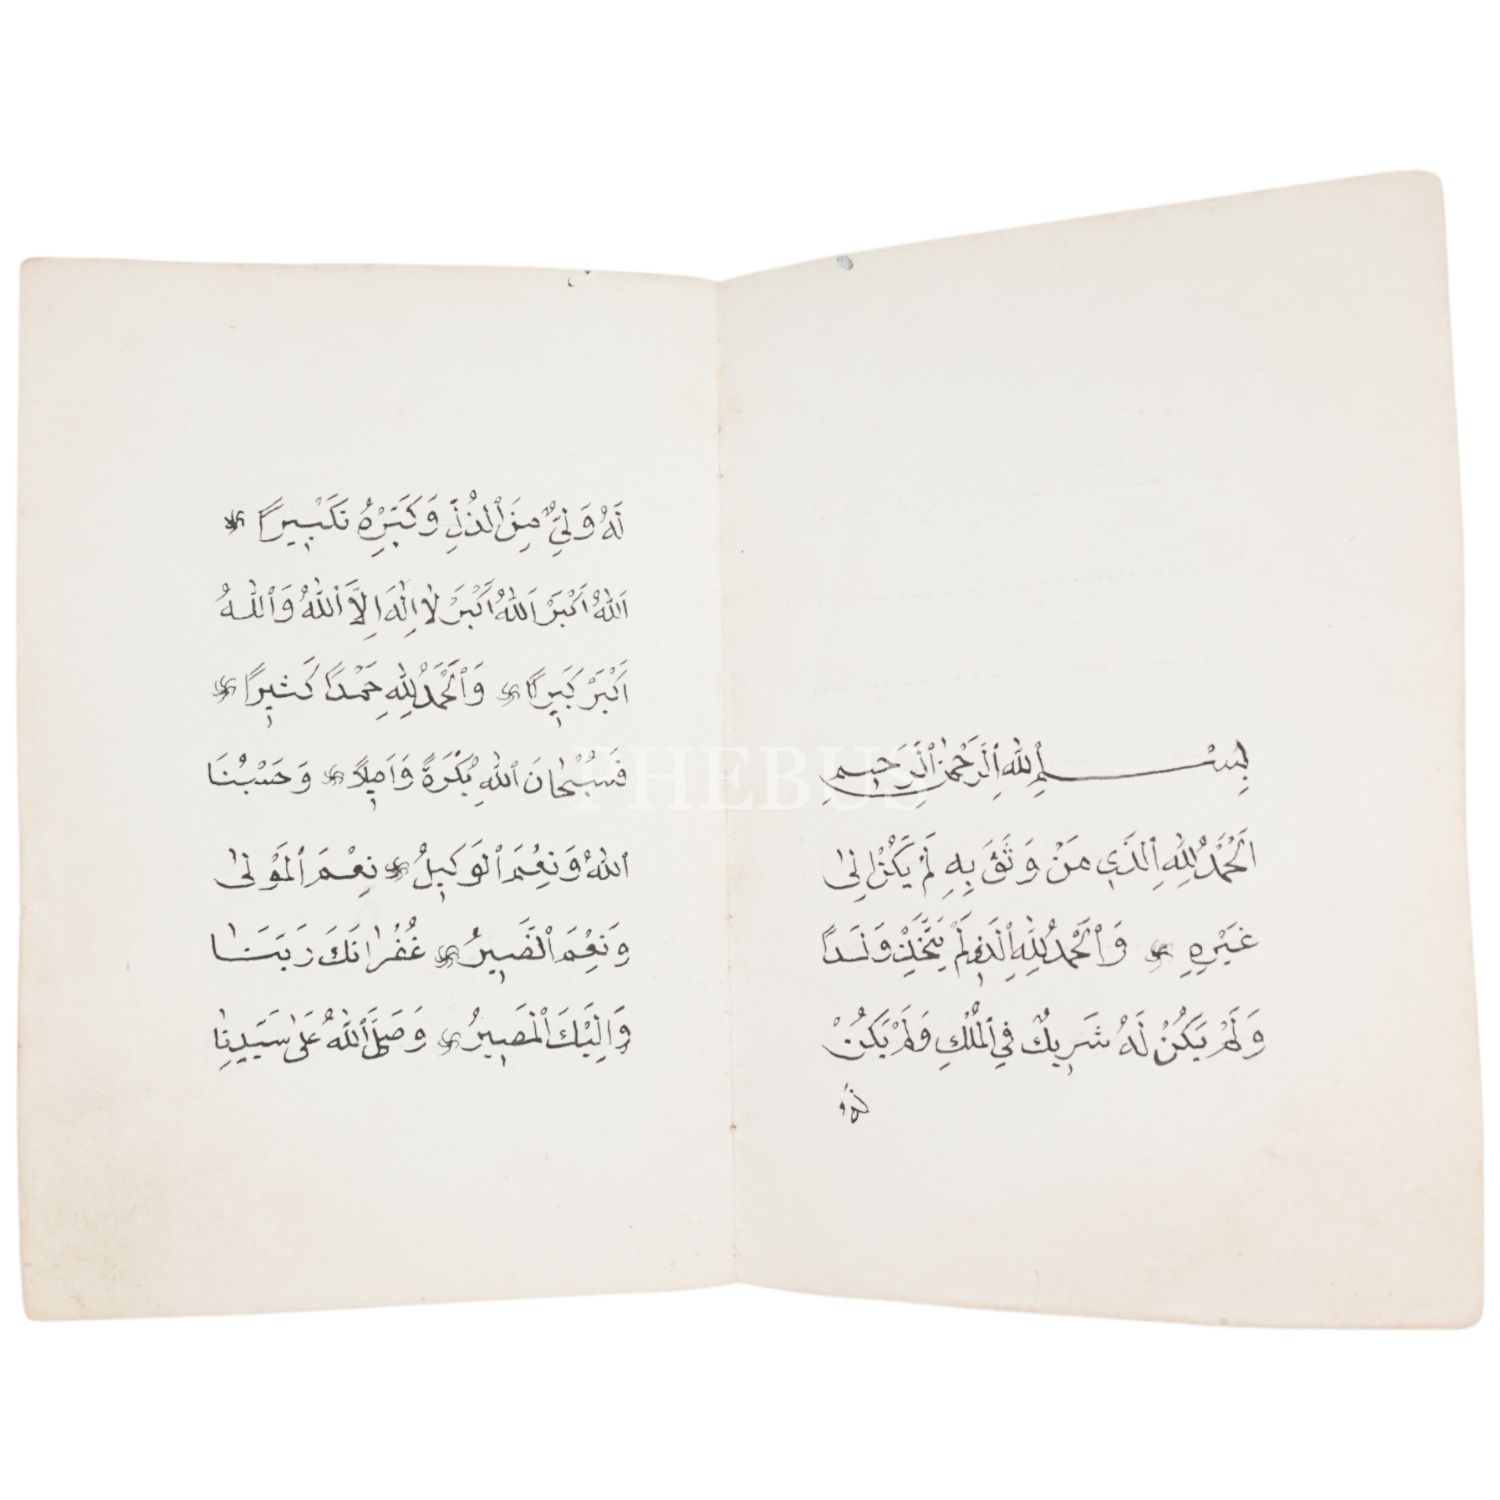 بِسْمِ اللهِ الرَّحْمٰنِ الرَّحِيمِ
اَلْحَمْدُ لِلّٰهِ الَّذِي مَنْ وَثَقَ بِهِ لَمْ يَكِلْهُ اِلٰى
غَيْرِهِ ۞ وَالْحَمْدُ لِلّٰهِ الَّذِي لَمْ يَتَّخِذْ وَلَدًا
وَلَمْ يَكُنْ لَهُ شَرِيكٌ فِي الْمُلْكِ وَلَمْ يَكُنْ
لَهُ
لَهُ وَلِيٌّ مِنَ الذُّلِّ وَكَبِّرْهُ تَكْبِيرًا ۞
اَللهُ اَكْبَرُ اَللهُ اَكْبَرُ لَا اِلٰهَ اِلَّا اللهُ وَاللهُ
اَكْبَرُ كَبِيرًا ۞ وَالْحَمْدُ لِلّٰهِ حَمْدًا كَثِيرًا ۞
فَسُبْحَانَ اللهِ بُكْرَةً وَاَصِيلًا ۞ وَحَسْبُنَا
اللهُ وَنِعْمَ الْوَكِيلُ ۞ نِعْمَ الْمَوْلٰى
وَنِعْمَ النَّصِيرُ ۞ غُفْرَانَكَ رَبَّنَا
وَاِلَيْكَ الْمَصِيرُ ۞ وَصَلَّى اللهُ عَلٰى سَيِّدِنَا
PHEBUS